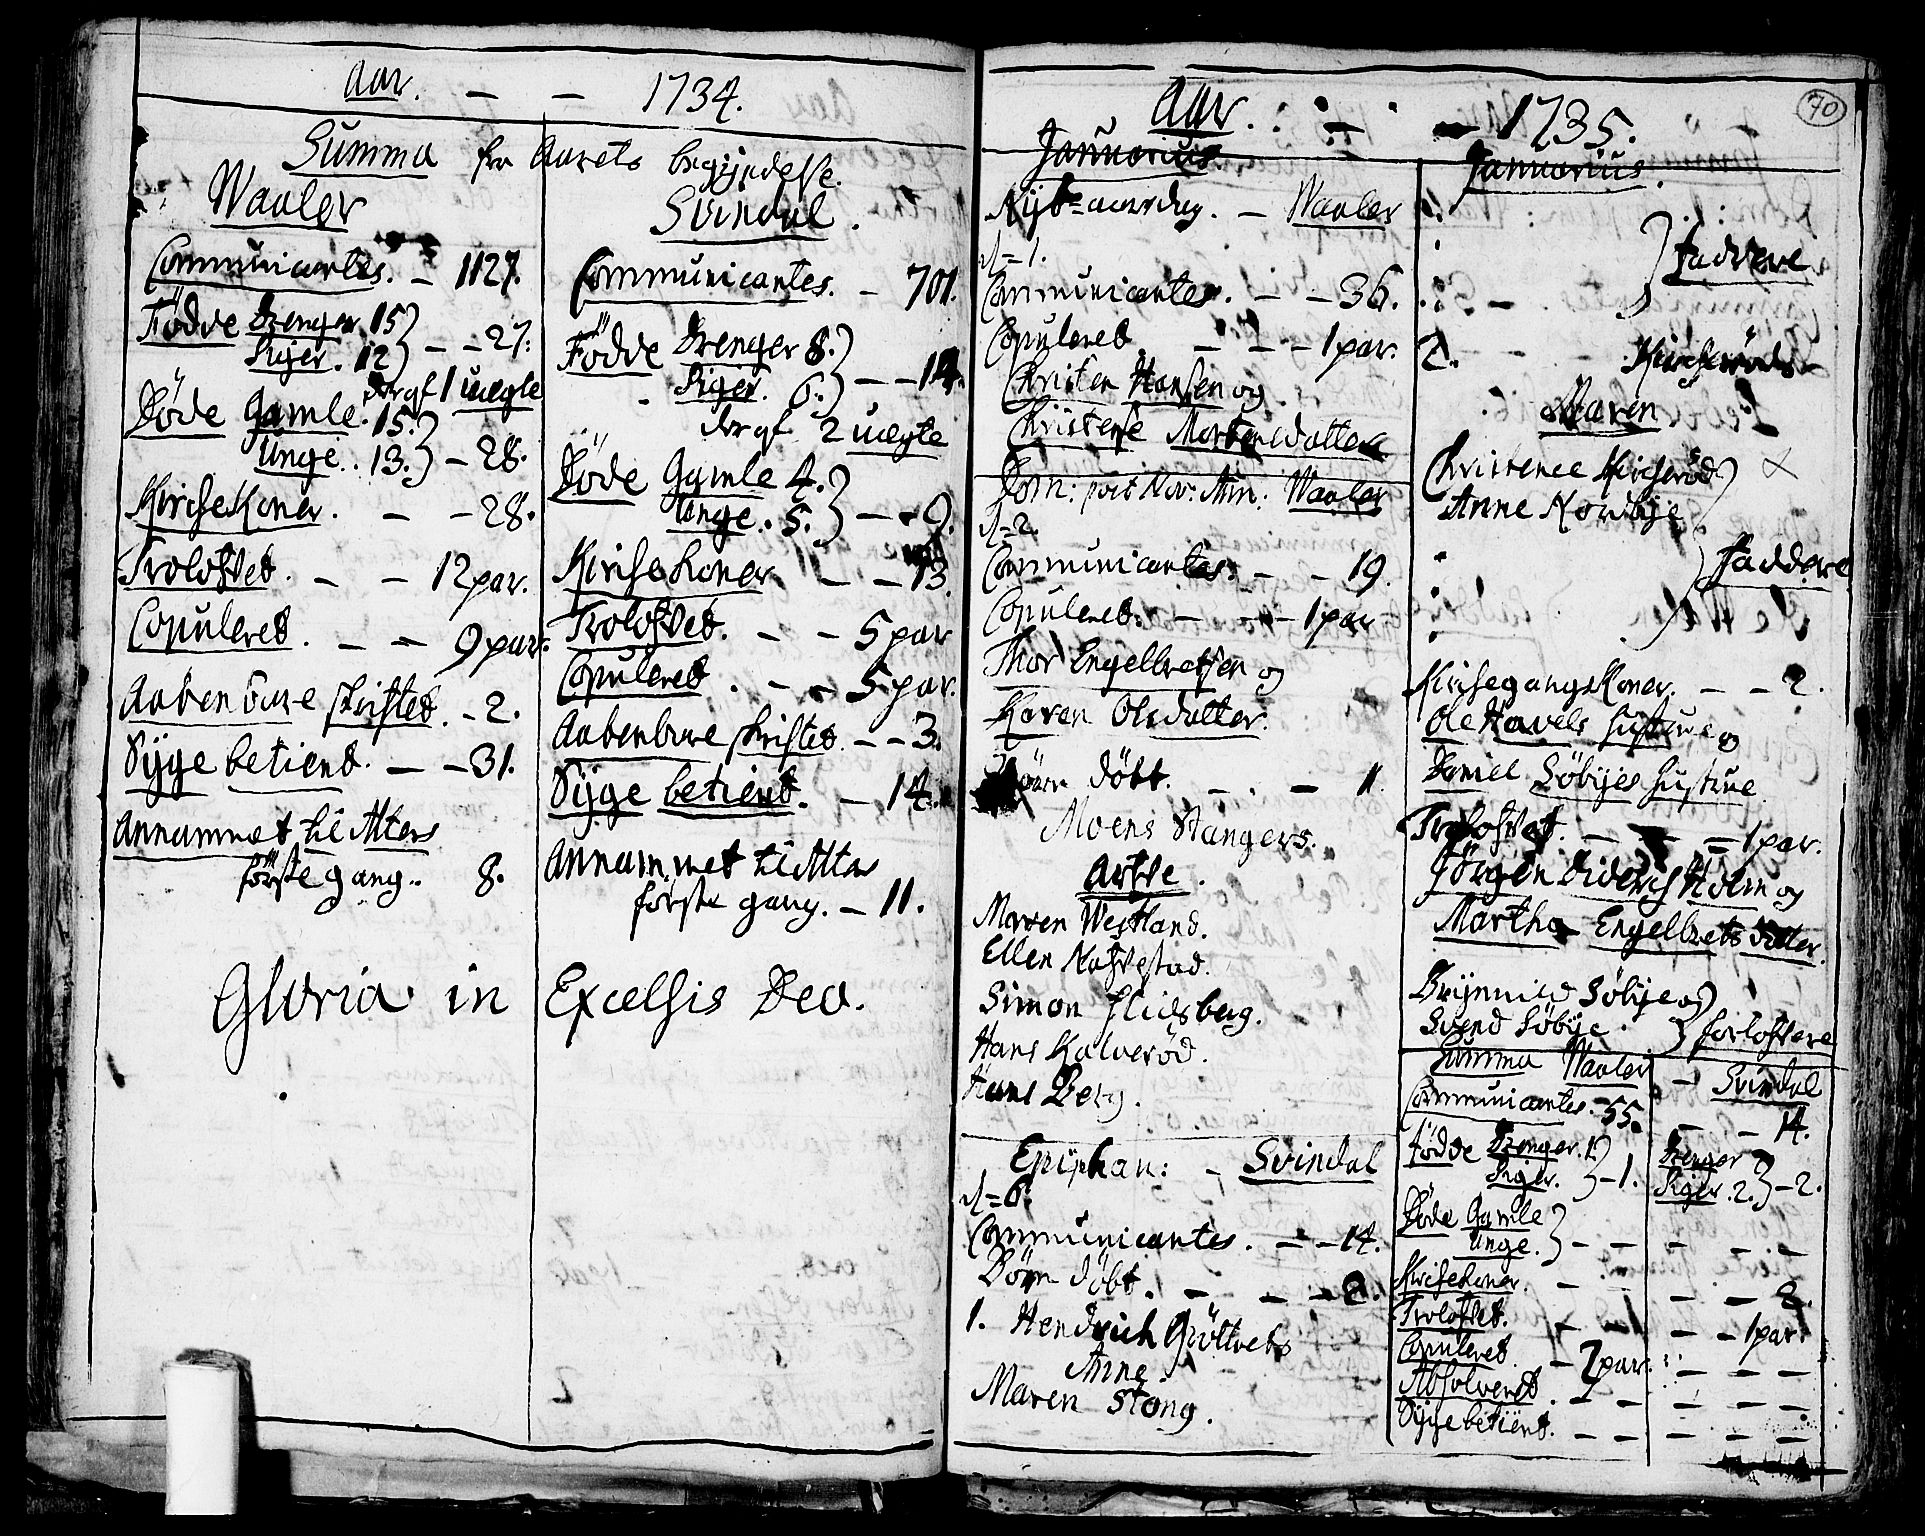 Aar. — — 1734.
Summa fra Aarets begyndelse.
Waaler
Communicantes. — 1127.
Födde Drenger 15
Piger. 12 — — 27.
dergf 1 uægte
Döde Gamle. 15.
Unge. 13. — 28.
KircheKoner. — — 28.
Trolofvet. — — 12 par.
Copuleret. — — 9 par.
Aabenbare skriftet. — 2.
Syge betient. — — 31.
Annammet til Alters
förste gang. 8.
Svindal.
Communicantes. — 701.
Födde Drenger 8.
Piger. 6. — — 14.
dergf 2 uægte
Döde Gamle 4.
Unge. 5. — — 9.
Kirche Koner — — 13.
Trolofvet. — — 5 par
Copuleret. — — 5 par.
Aabenbare skriftet. — — 3.
Syge betient. — 14.
Annammet til Alters
förste gang. — 11.
Gloria in Excelsis Deo.
70
Aar. — — 1735.
Januarius.
Nyt=aarsdag. — Waaler
d=1.
Communicantes. — — 36.
Copuleret — — — 1 par.
Christen Hansen og
Christense Mortensdatter
Dom: post Nov: Ann: Waaler
d=2.
Communicantes. — — 19.
Copuleret. — — — 1 par
Thor Engelbretsen og
Karen Olsdatter.
Börn döbt. — — 1.
Moens Stangers.
Arthe.
Maren Westland.
Ellen Nafvestad.
Simon Flidsberg.
Hans Kalveröd.
Hans Berg.
Epiphan: — Svindal
d=6.
Communicantes. — — 14.
Börn döbt. — — — 2.
1. Hendrich Gröttvets
Anne
Maren Stong.
Januarius.
Faddere
2. Kircheröds
Maren
Christence Kircheröd
Anne Nordbye
Faddere
Kirchegangs Koner. — — 2.
Ole Havels hustrue og
Daniel Söbyes hustrue
Trolofvet. — — — 1 par.
Jörgen Diderich Holm og
Martha Engelbrets datter.
Brynnild Söbye og
Svend Söbye. forlofvere
Summa Waaler — Svindal
Communicantes. — 55. — — 14.
Födde Drenger. 1. Drenger —
Piger. — 1. Piger. 2. — 2.
Döde Gamle
Unge. — — — — —
Kirchekoner. — — — — 2.
Trolofvet. — — — — 1 par.
Copuleret. — 2 par. — — —
Absolveret. — — — — —
Syge betient. — — — — —